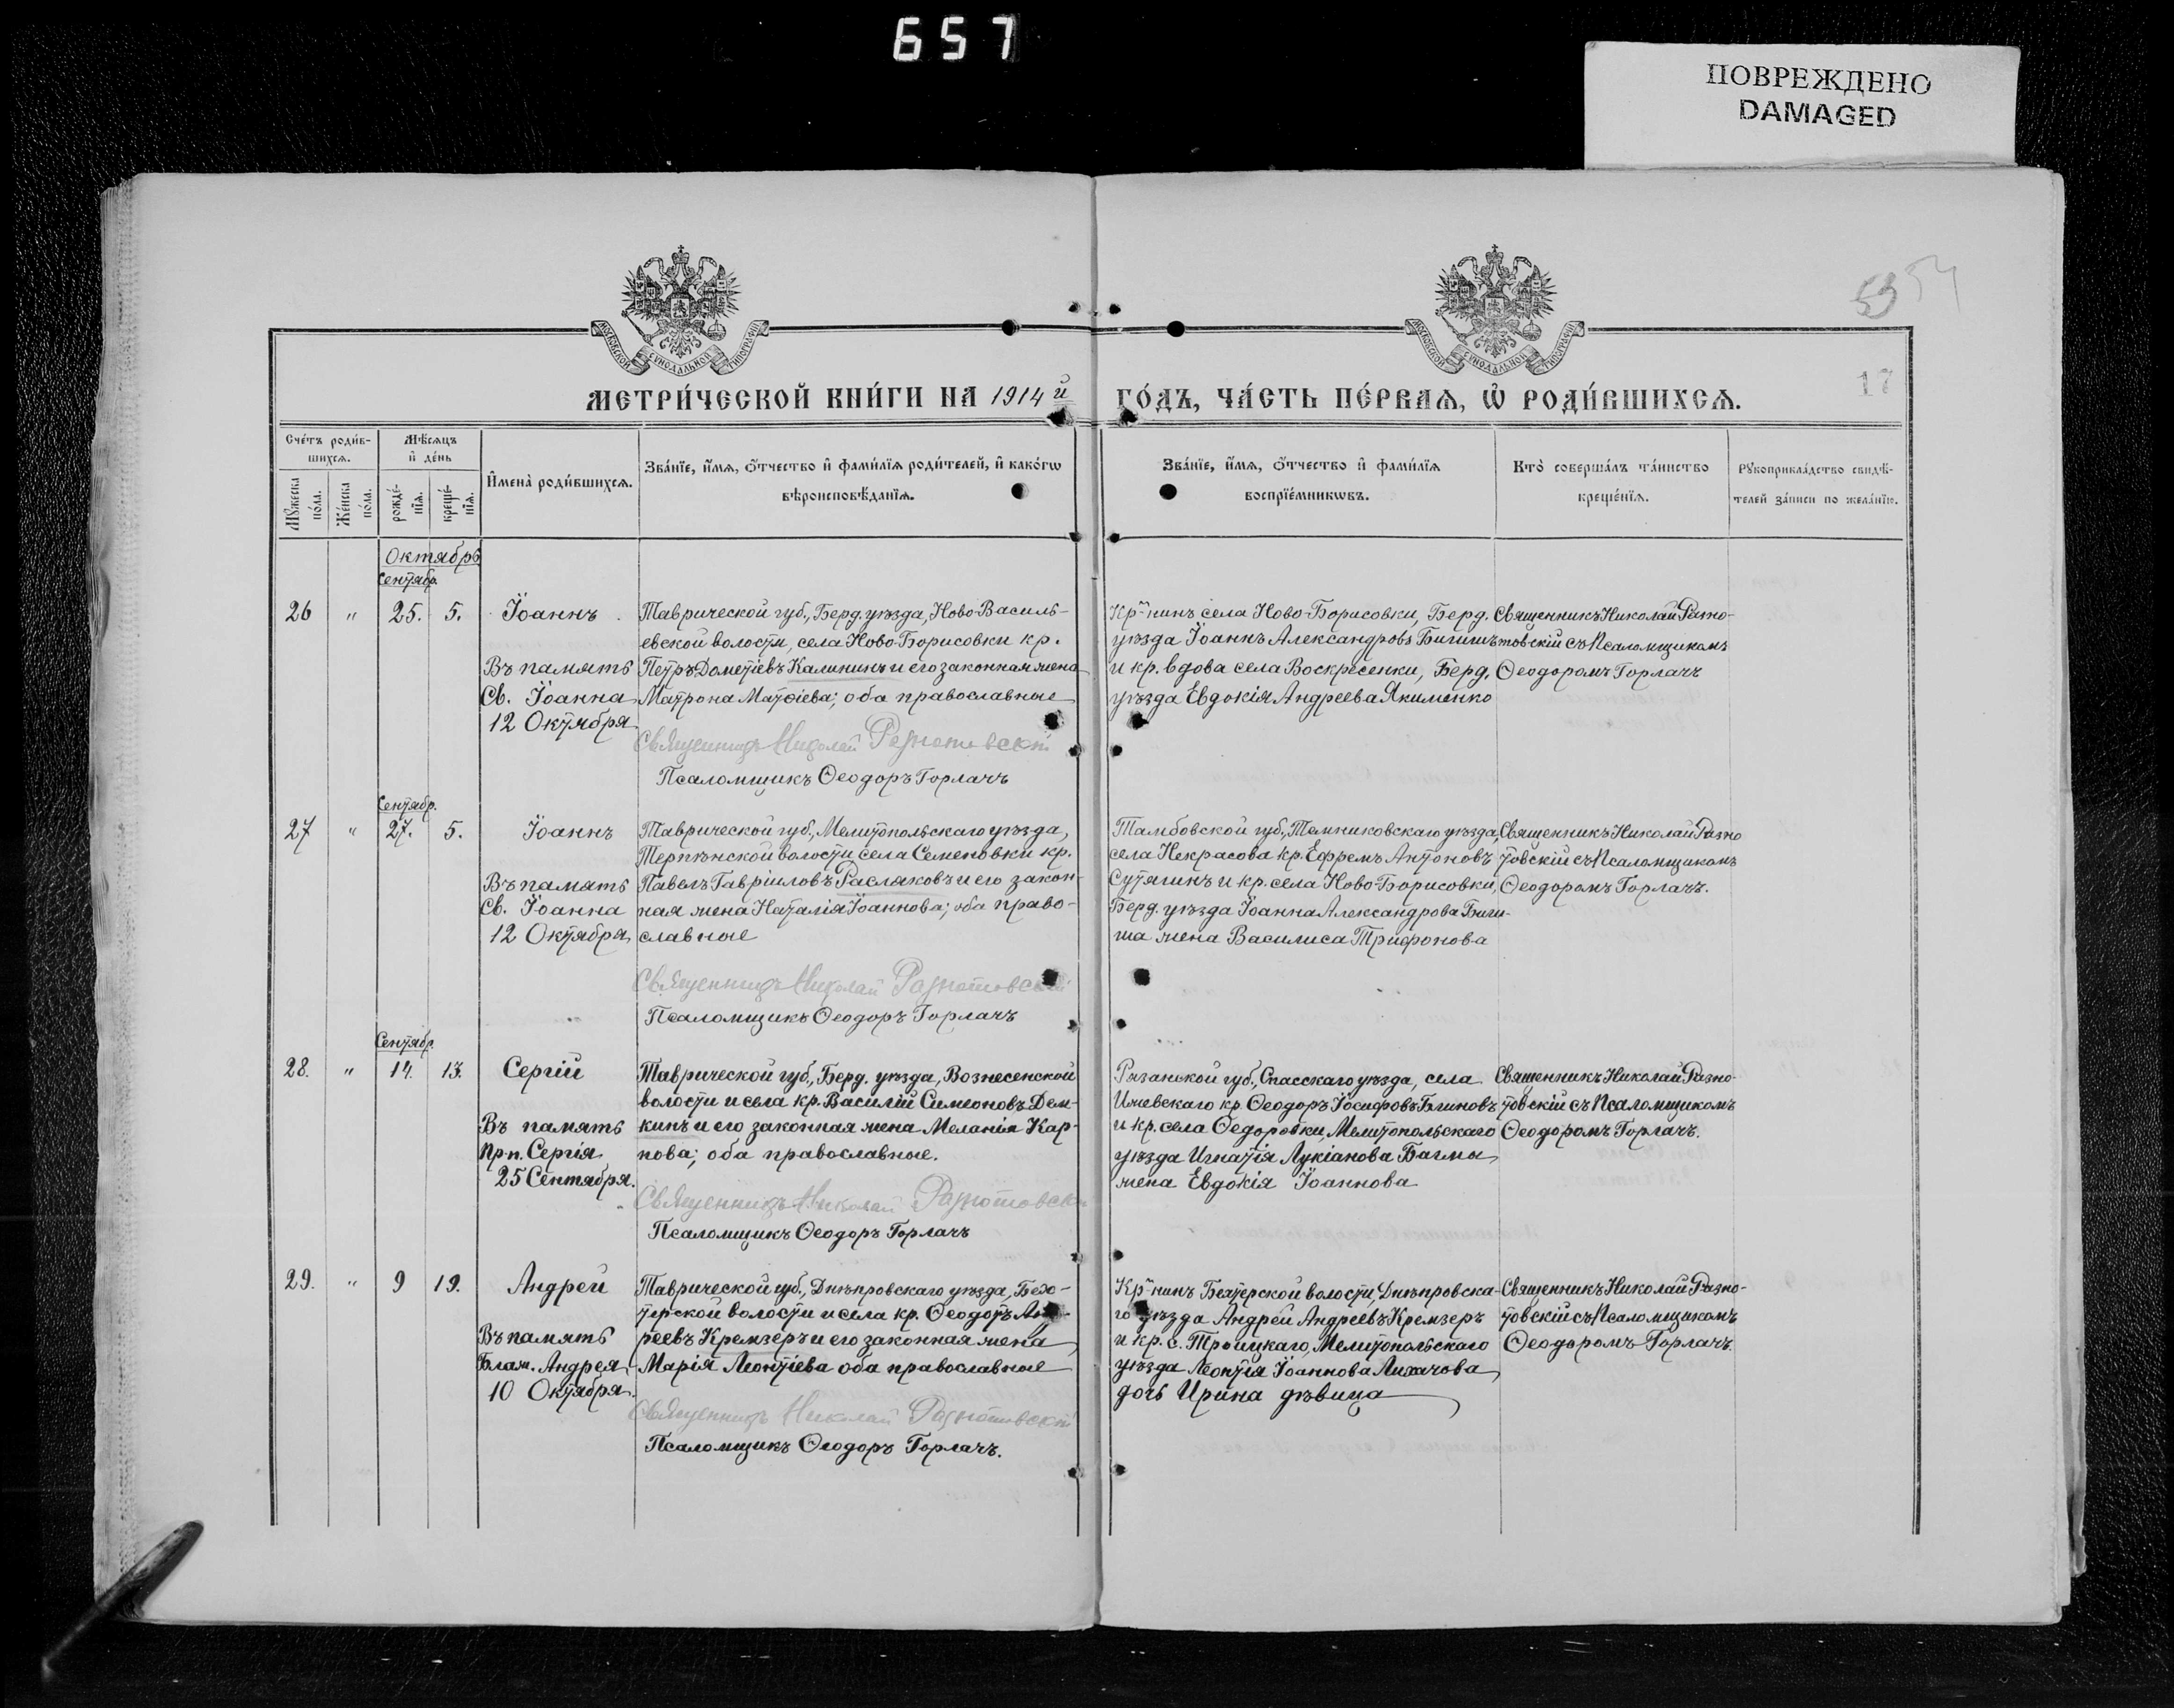 657
ПОВРЕЖДЕНО
DAMAGED
53 54
МОСКОВСКОЙ СѴНОДАЛЬНОЙ ТИПОГРАФІИ
МОСКОВСКОЙ СѴНОДАЛЬНОЙ ТИПОГРАФІИ
МЕТРИ́ЧЕСКОЙ КНИ́ГИ НА 1914й ГО́ДЪ, ЧА́СТЬ ПЕ́РВАѦ, Ѡ҆ РОДИ́ВШИХСѦ.
17
Сче́тъ роди́в-
шихсѧ.
Мꙋ́жеска по́ла.
Же́нска по́ла.
Мѣ́сѧцъ
и҆ де́нь
рожде́-
нїѧ.
креще́-
нїѧ.
И҆мена̀ роди́вшихсѧ.
Зва́нїе, и҆́мѧ, ѻ҆́тчество и҆ фами́лїѧ роди́телей, и҆ како́гѡ
вѣроисповѣ́данїѧ.
Зва́нїе, и҆́мѧ, ѻ҆́тчество и҆ фами́лїѧ
воспрїе́мникѡвъ.
Кто̀ соверша́лъ та́инство
креще́нїѧ.
Рꙋкоприкла́дство свидѣ́-
телей за́писи по жела́нїю.
Октябрь
Сентябр.
26 " 25. 5. Іоаннъ
Въ память
Св. Іоанна
12 Октября
Таврической губ., Берд. уѣзда, Ново-Василь-
евской волости, села Ново-Борисовки кр.
Петръ Дометіевъ Калининъ и его законная жена
Матрона Матѳіева; оба православные
Священникъ Николай Разнотовскій
Псаломщикъ Ѳеодоръ Горлачъ
Кр-нинъ села Ново-Борисовки, Берд.
уѣзда Іоаннъ Александровъ Бигишъ
и кр. вдова села Воскресенки, Берд.
уѣзда Евдокія Андреева Якименко
Священникъ Николай Разно-
товскій съ Псаломщикомъ
Ѳеодоромъ Горлачъ
Сентябр.
27 " 27. 5. Іоаннъ
Въ память
Св. Іоанна
12 Октября
Таврической губ., Мелитопольскаго уѣзда,
Терпѣнской волости, села Семеновки кр.
Павелъ Гавріиловъ Расляковъ и его закон-
ная жена Наталія Іоаннова; оба право-
славные
Священникъ Николай Разнотовскій
Псаломщикъ Ѳеодоръ Горлачъ
Тамбовской губ., Темниковскаго уѣзда,
села Некрасова кр. Ефремъ Антоновъ
Сутягинъ и кр. села Ново-Борисовки,
Берд. уѣзда Іоанна Александрова Биги-
ша жена Василиса Трифонова
Священникъ Николай Разно
товскій съ Псаломщикомъ
Ѳеодоромъ Горлачъ.
Сентябр
28. " 14. 13. Сергій
Въ память
Прп. Сергія
25 Сентября.
Таврической губ., Берд. уѣзда, Вознесенской
волости и села кр. Василій Симеоновъ Дем-
кинъ и его законная жена Меланія Кар-
пова; оба православные.
Священникъ Николай Разнотовскій
Псаломщикъ Ѳеодоръ Горлачъ
Рязанской губ., Спасскаго уѣзда, села
Ижевскаго кр. Ѳеодоръ Іосифовъ Бягиновъ
и кр. села Ѳедоровки, Мелитопольскаго
уѣзда Игнатія Лукіанова Багмы
жена Евдокія Іоаннова
Священникъ Николай Разно-
товскій съ Псаломщикомъ
Ѳеодоромъ Горлачъ.
29. " 9 19. Андрей
Въ память
Блаж. Андрея
10 Октября.
Таврической губ., Днѣпровскаго уѣзда,
волости и села кр. Ѳеодотъ Анд-
реевъ Кремзеръ и его законная жена
Марія Леонтіева оба православные
Священникъ Николай Разнотовскій
Псаломщикъ Ѳеодоръ Горлачъ.
Кр-нинъ волости, Днѣпровска-
го уѣзда Андрей Андреевъ Кремзеръ
и кр. с. Троицкаго, Мелитопольскаго
уѣзда Леонтія Іоаннова Лихачова
дочь Ирина дѣвица
Священникъ Николай Разно-
товскій съ Псаломщикомъ
Ѳеодоромъ Горлачъ.